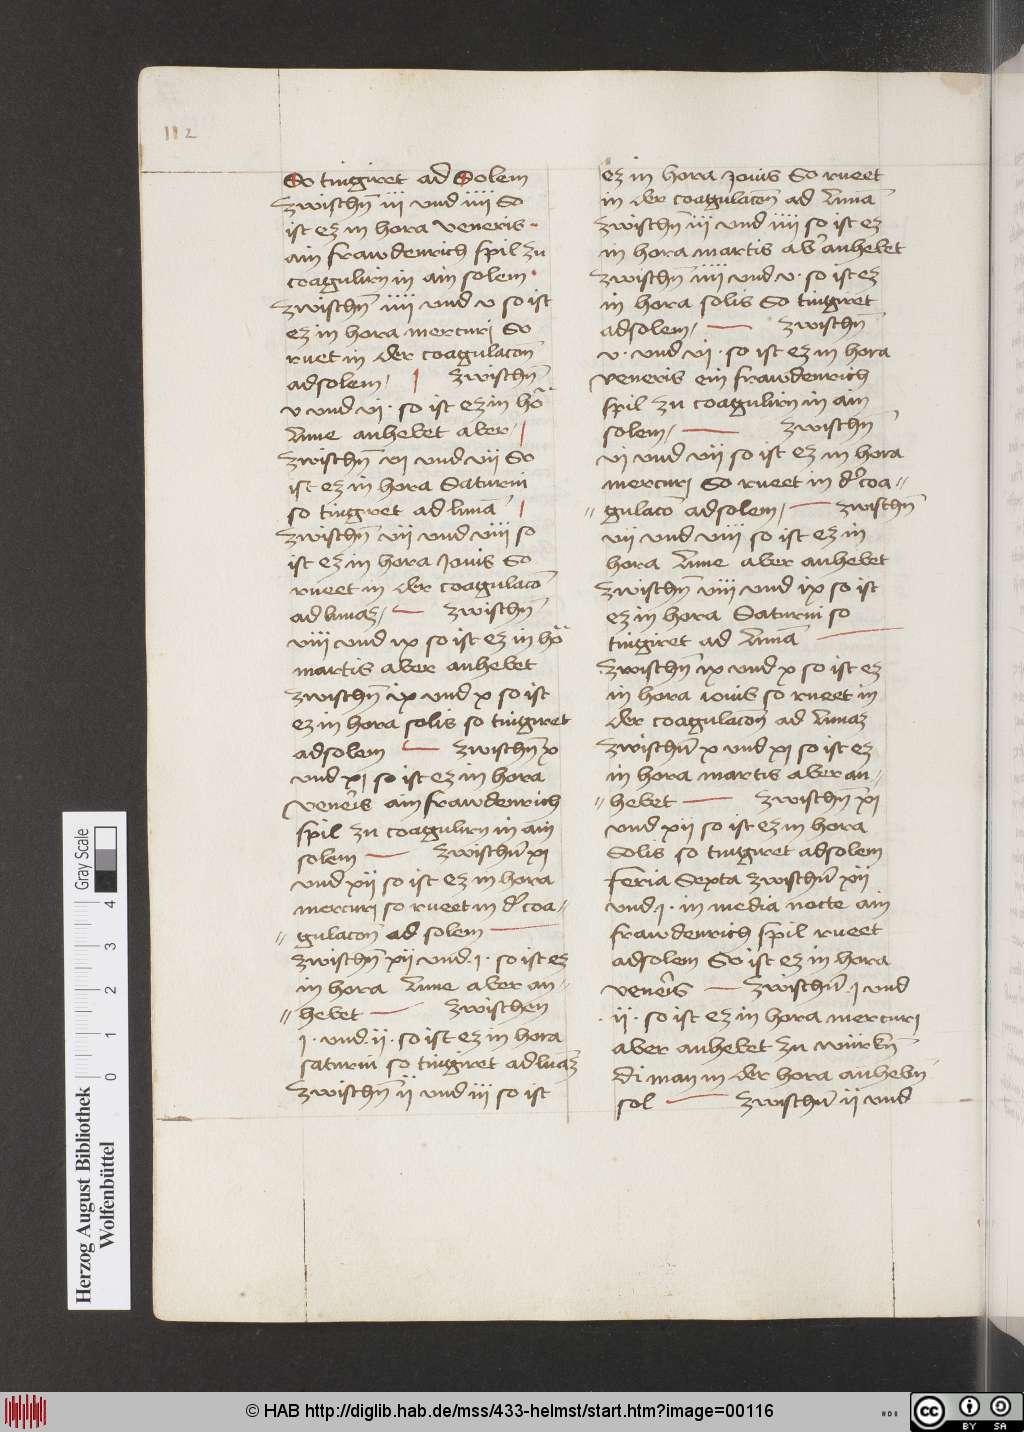 112
So tingiret ad Solem
zwischn̄ iii vnd iiii So
ist ez in hora veneris ·
ain frawdenrich spil zu
coagulirn in ain solem ·
zwischn̄ iiii vnd v so ist
ez in hora mercurj So
ruet in der coagulacon̄
adsolem / zwischn̄
v vnd vj · so ist ez in ho᷑
Lune anhebet aber /
zwischn̄ vj vnd vii So
ist ez in hora Saturni
so tingiret ad lunā
zwischn̄ vii vnd viii so
ist ez in hora Jouis So
rueet in der coagulacō
ad lunaz / zwischn̄
viii vnd ix so ist ez in ho᷑
martis aber anhebet
zwischn̄ ix vnd x so ist
ez in hora solis so tingiret
adsolem zwischn̄ x
vnd xj so ist ez in hora
veneris ain frawdenrich
spil zu coagulirn in ain
solem zwischn̄ xj
vnd xii so ist ez in hora
mercurj so rueet in d᷑ coa〃
〃 gulacon̄ ad solem
zwischn̄ xii vnd · j · so ist ez
in hora Lune aber an〃
〃 hebet zwischen
j · vnd · ii · so ist ez in hora
saturni so tingiret ad lunaz
zwischn̄ ii vnd iii so ist
ez in hora Jouis So rueet
in der coagulacon̄ ad Lunā
zwischn̄ iii vnd iiii so ist ez
in hora martis ab᷑ anhebet
zwischn̄ iiii vnd v · so ist ez
in hora solis So tingiret
adsolem / zwischn̄
v · vnd vj · so ist ez in hora
veneris ein frawdenrich
spil zu coagulirn in ain
solem / zwischn̄
vj vnd vii so ist ez in hora
mercurj So rueet in d᷑ coa〃
〃 gulacō adsolem / zwischn̄
vii vnd viii so ist ez in
hora Lune aber anhebet
zwischn̄ viii vnd ix so ist
ez in hora Saturni so
tingiret ad Lunā
zwischn̄ ix vnd x so ist ez
in hora iouis so rueet in
der coagulacon̄ ad Lunaz
zwischn̄ x vnd xj so ist ez
in hora martis aber an〃
〃 hebet zwischn̄ xj
vnd xii so ist ez in hora
Solis so tingiret adsolem
Feria Sexta zwischn̄ xii
vnd · j · in media nocte ain
frawdenrich spil rueet
adsolem So ist ez in hora
veneris zwischn̄ · j vnd
· ii · so ist ez in hora mercurj
aber anhebet zu würkn̄
di man in der hora anhebn̄
sol zwischn̄ ii vnd
Herzog August Bibliothek
Wolfenbüttel
0 1 2 3 4
Gray Scale
© HAB http://diglib.hab.de/mss/433-helmst/start.htm?image=00116
cc BY SA